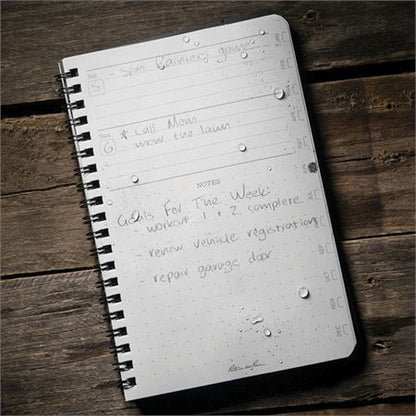 Sat
5 - 5pm Rainiers game
Sun
6 * Call Mom
- mow the lawn
NOTES
Goals For The Week:
- workout 1 & 2 complete
- renew vehicle registration
- repair garage door